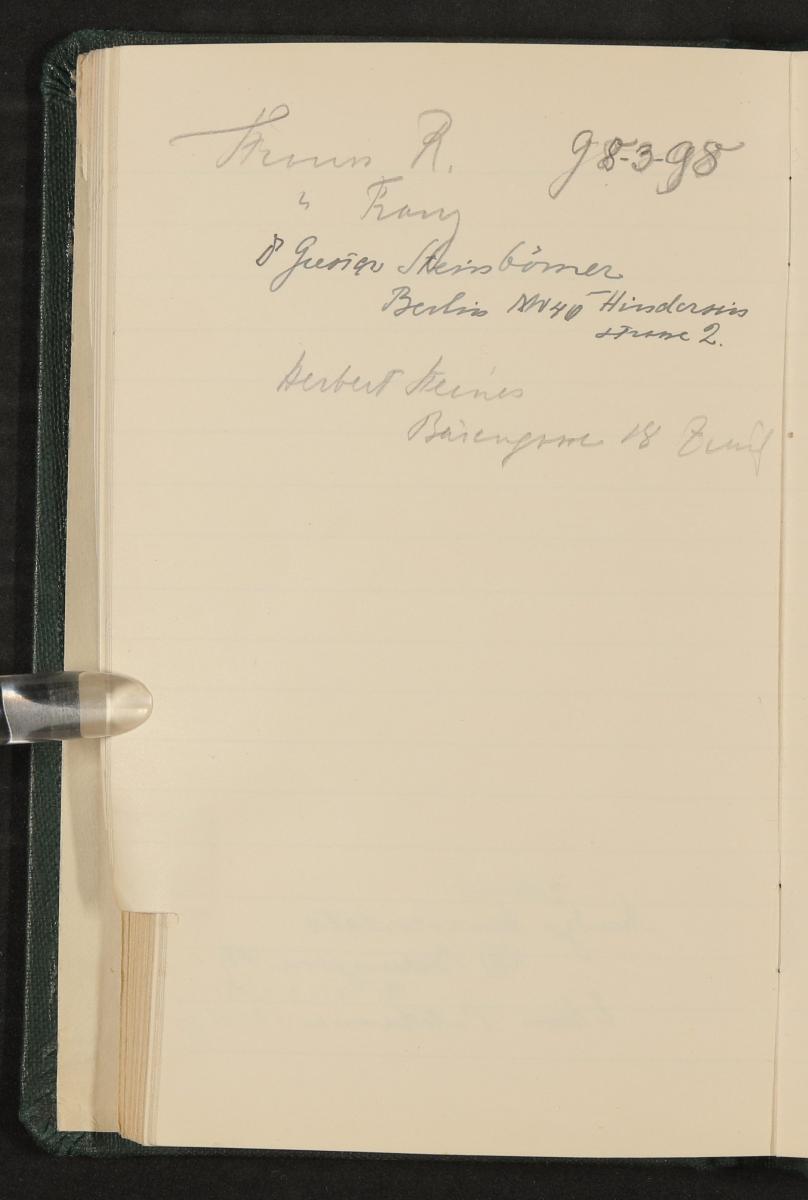 Strauss R. 98-3-98
" Franz
Dr Gustav Steinbömer
Berlin NW 40 - Hindersin
strasse 2.
Herbert Steiner
Bärengasse 18 Zürich